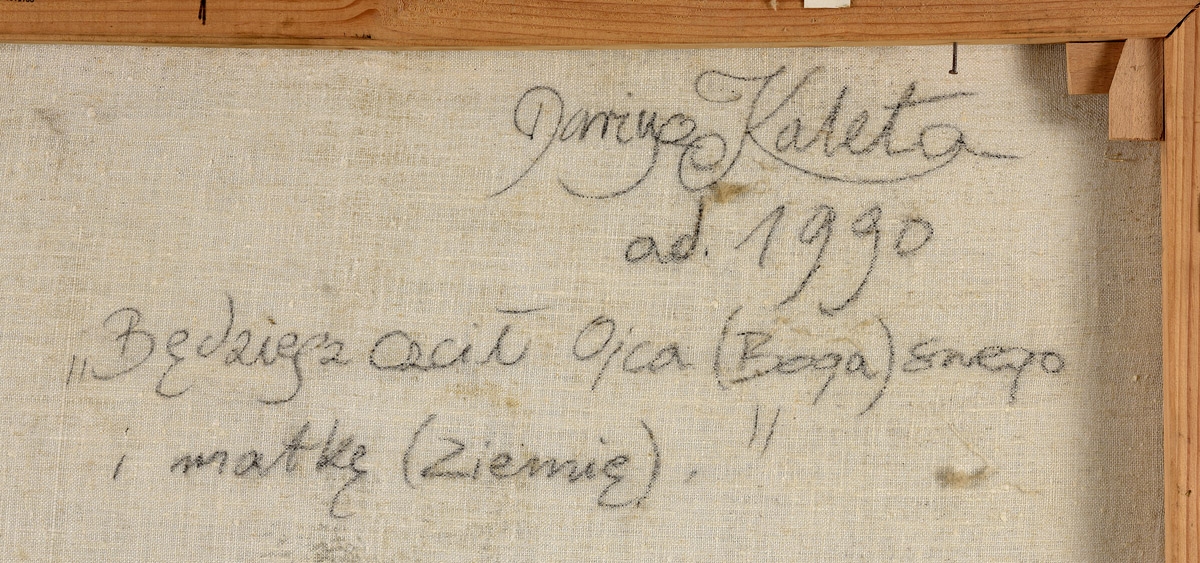 Dariusz Kaleta
ad. 1990
„Będziesz czcił Ojca (Boga) swego
i matkę (Ziemię)."